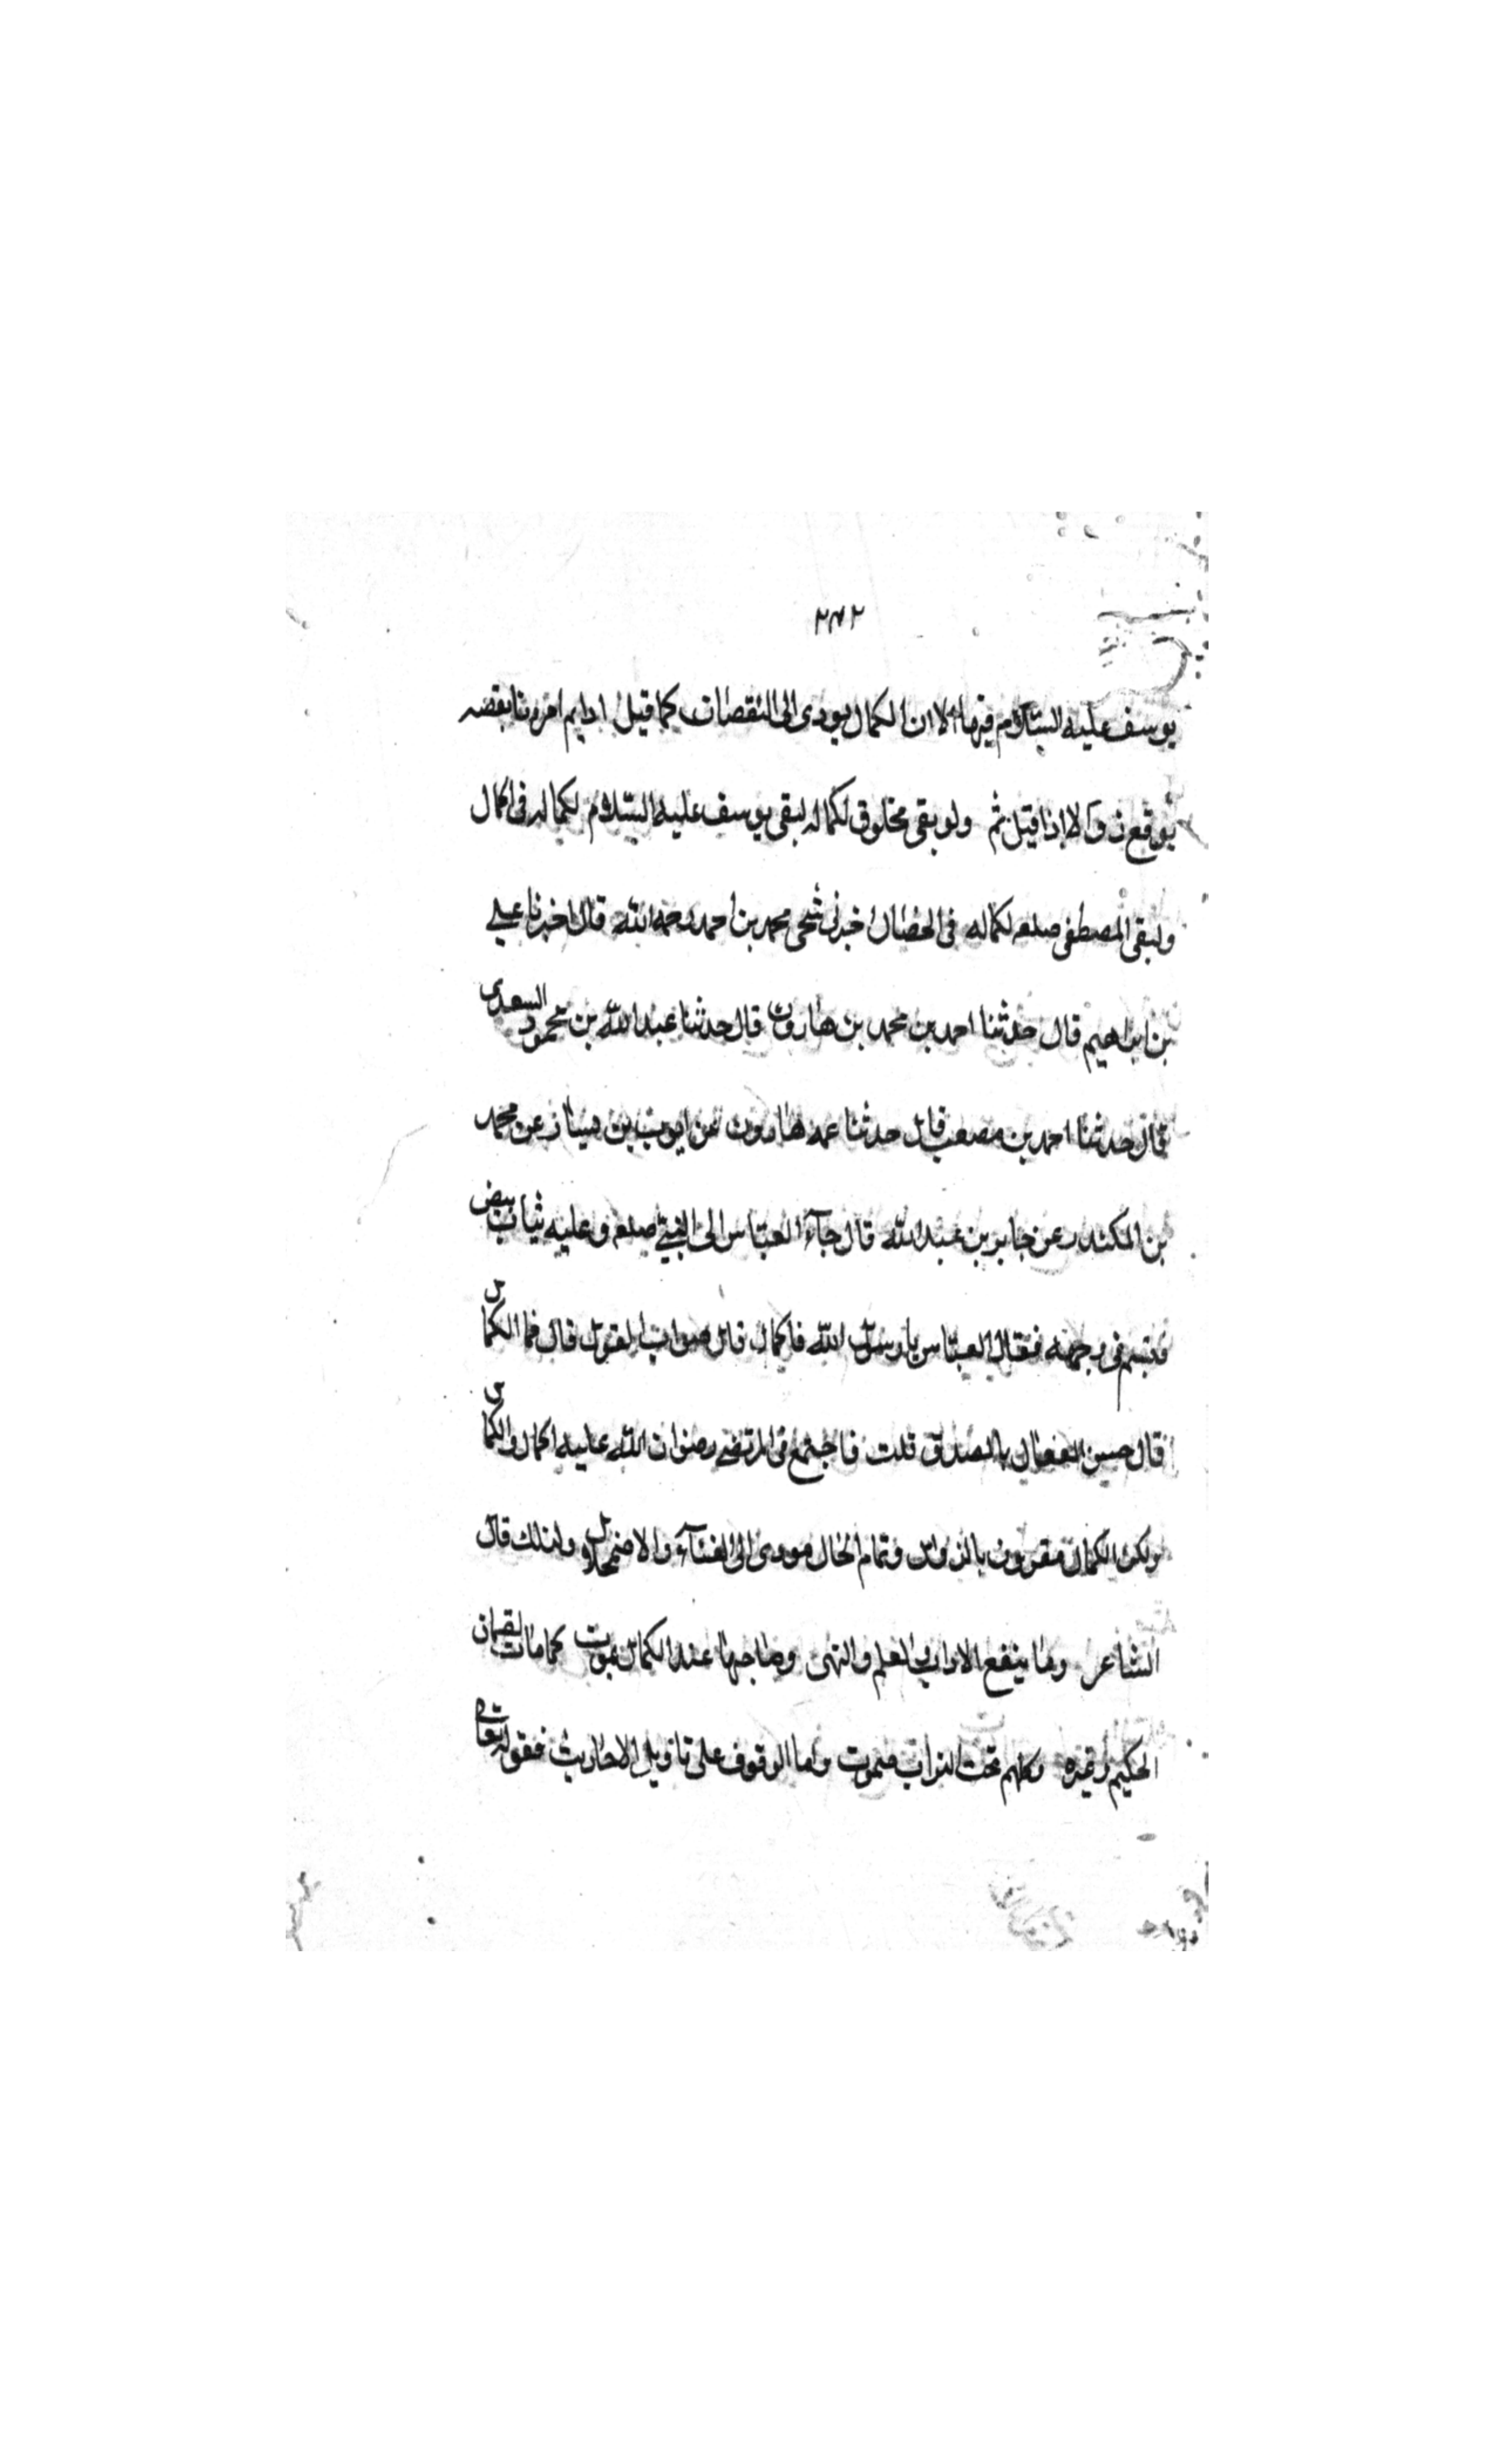 ٢٧٢
يوسف عليه السلام فيها الا ان الكمال يودى الى النقصان كما قيل اذا تم امر دنا نقصه
توقع زوالا اذا قيل تم ولو بقى مخلوق لكماله لبقى يوسف عليه السلام لكماله فى الجمال
ولبقى المصطفى صلعم لكماله فى الخصال اخبرنى شيخى محمد بن احمد رحمه الله قال اخبرنا على
بن ابراهيم قال حدثنا احمد بن محمد بن هارون قال حدثنا عبد الله بن محمود السعدى
قال حدثنا احمد بن مصعب قال حدثنا عمر هارون عن ايوب بن يسار عن محمد
بن المكندر عن جابر بن عبد الله قال جآء العباس الى النبى صلعم وعليه ثياب بيض
فتبسم فى وجهه فقال العباس يا رسول الله ما الجمال قال صواب القول قال فما الكمال
قال حسن الفعال بالصدق قلت فاجتمع فى المرتضى رضوان الله عليه الجمال والكمال
ولكن الكمال مقرون بالزوال وتمام الحال مودى الى الفنآء والاضمحلال ولذلك قال
الشاعر وما ينفع الاداب والعلم والنهى وصاحبها عند الكمال يموت كما مات لقمان
الحكيم وغيره وكلهم تحت التراب صموت واما الوقوف على تاويل الاحاديث فقوله تعالى